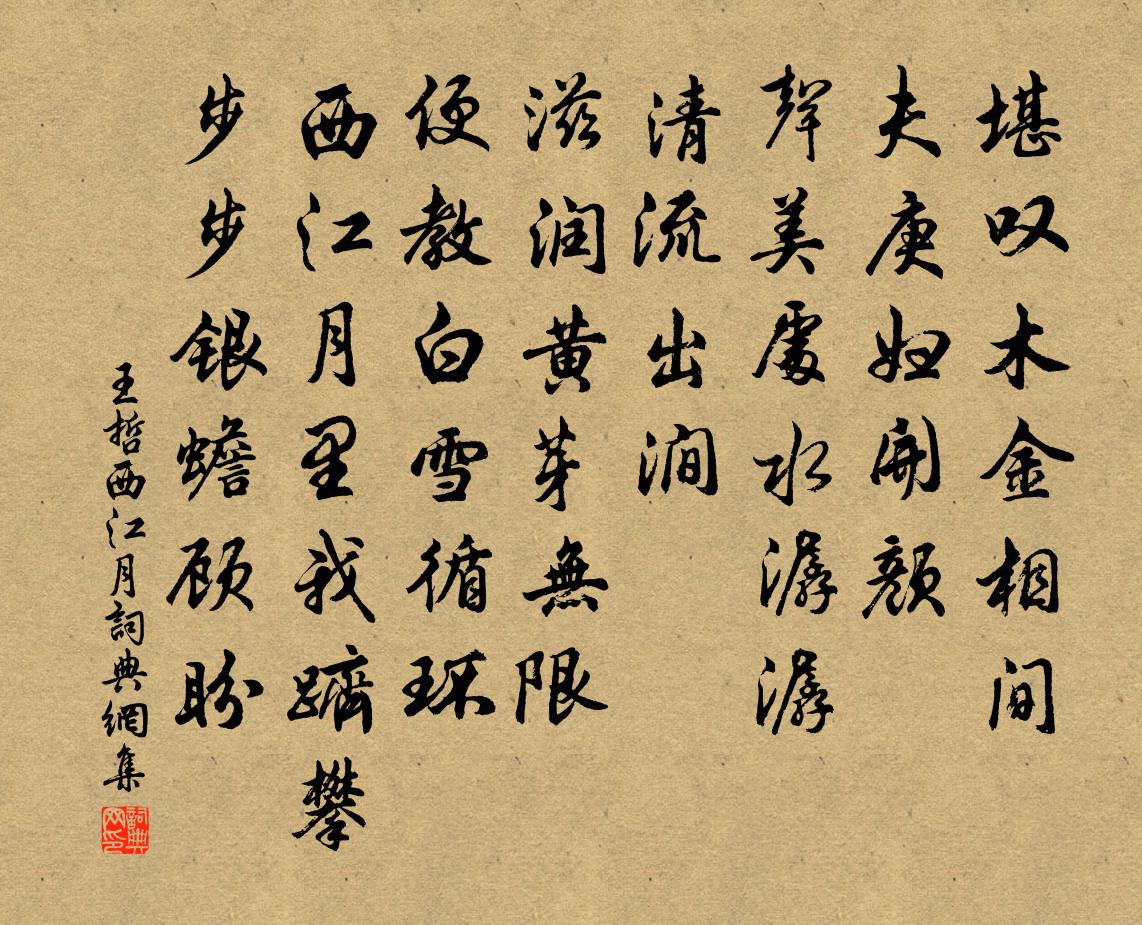 堪叹木金相间
夫庚妇開颜
聲美處水潺潺
清流出涧
滋润黄芽無限
便教白雪循环
西江月里我躋攀
步步銀蟾顾盼
王哲西江月詞典網集
詞典网印